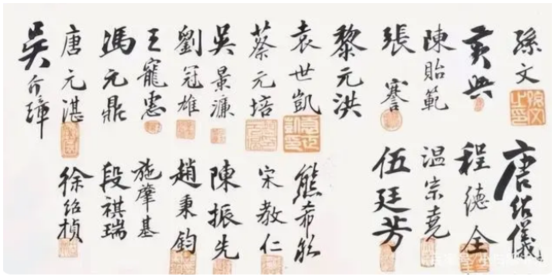 孫文
唐紹儀
黃興
程德全
陳貽範
温宗堯
張謇
伍廷芳
黎元洪
袁世凱
熊希齡
蔡元培
宋教仁
吳景濂
陳振先
劉冠雄
趙秉鈞
王寵惠
施肇基
馮元鼎
段祺瑞
唐元湛
徐紹楨
吳介璋